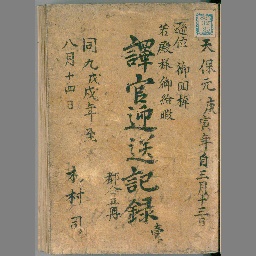 天保元庚寅年自三月十三日
通信 御囬棹
若殿様御給暇
譯官迎送記録 壹
都合五冊
同九戊戌年至
八月十四日
木村